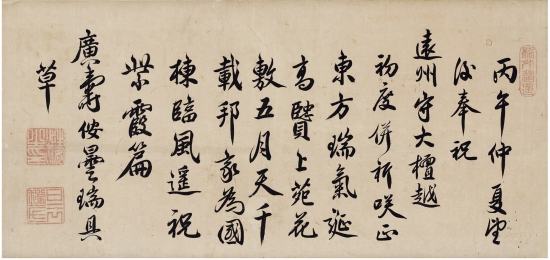 丙午仲夏望
後奉祝
遠州守大檀越
初度併祈咲正
東方瑞氣誕
高賢上苑花
敷五月天千
載邦家為國
棟臨風遙祝
紫霞篇
廣壽曇瑞具
草